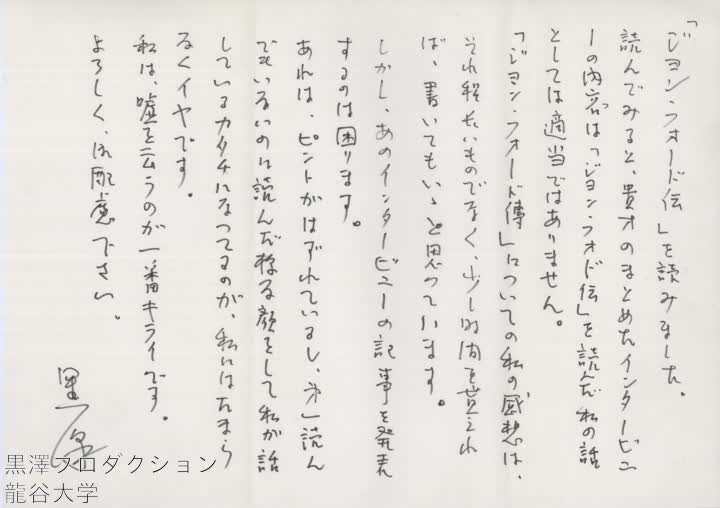 「ジョン・フォード伝」を読みました。
読んでみると、貴方のまとめたインタービュ
ーの内容は「ジョン・フォド伝」を読んだ私の話
としては適当ではありません。
「ジョン・フォード傳」についての私の感想は、
それ程長いものでなく、少し時間を貰えれ
ば、書いてもいゝと思っています。
しかし、あのインタービューの記事を発表
するのは困ります。
あれは、ピントがはずれているし、第一読ん
でもいないのに読んだ様な顔をして私が話
しているカタチになってるのが、私にはたまら
なくイヤです。
私は、嘘を云うのが一番キライです。
よろしく、御配慮下さい。
黒澤プロダクション
龍谷大学